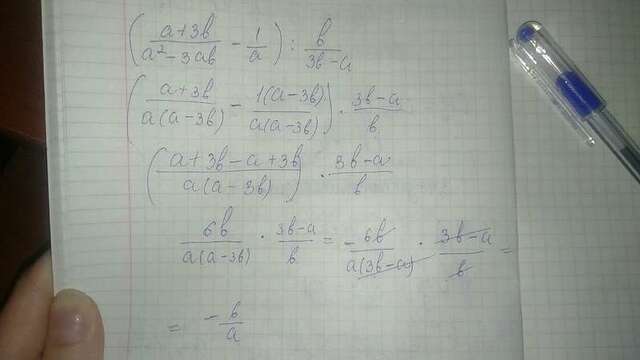 ((a+3b)/(a²-3ab) - 1/a) : b/(3b-a)
((a+3b)/(a(a-3b)) - 1(a-3b)/(a(a-3b))) · (3b-a)/b
((a+3b-a+3b)/(a(a-3b))) · (3b-a)/b
6b/(a(a-3b)) · (3b-a)/b = -6b/(a(3b-a)) · (3b-a)/b =
= -6/a